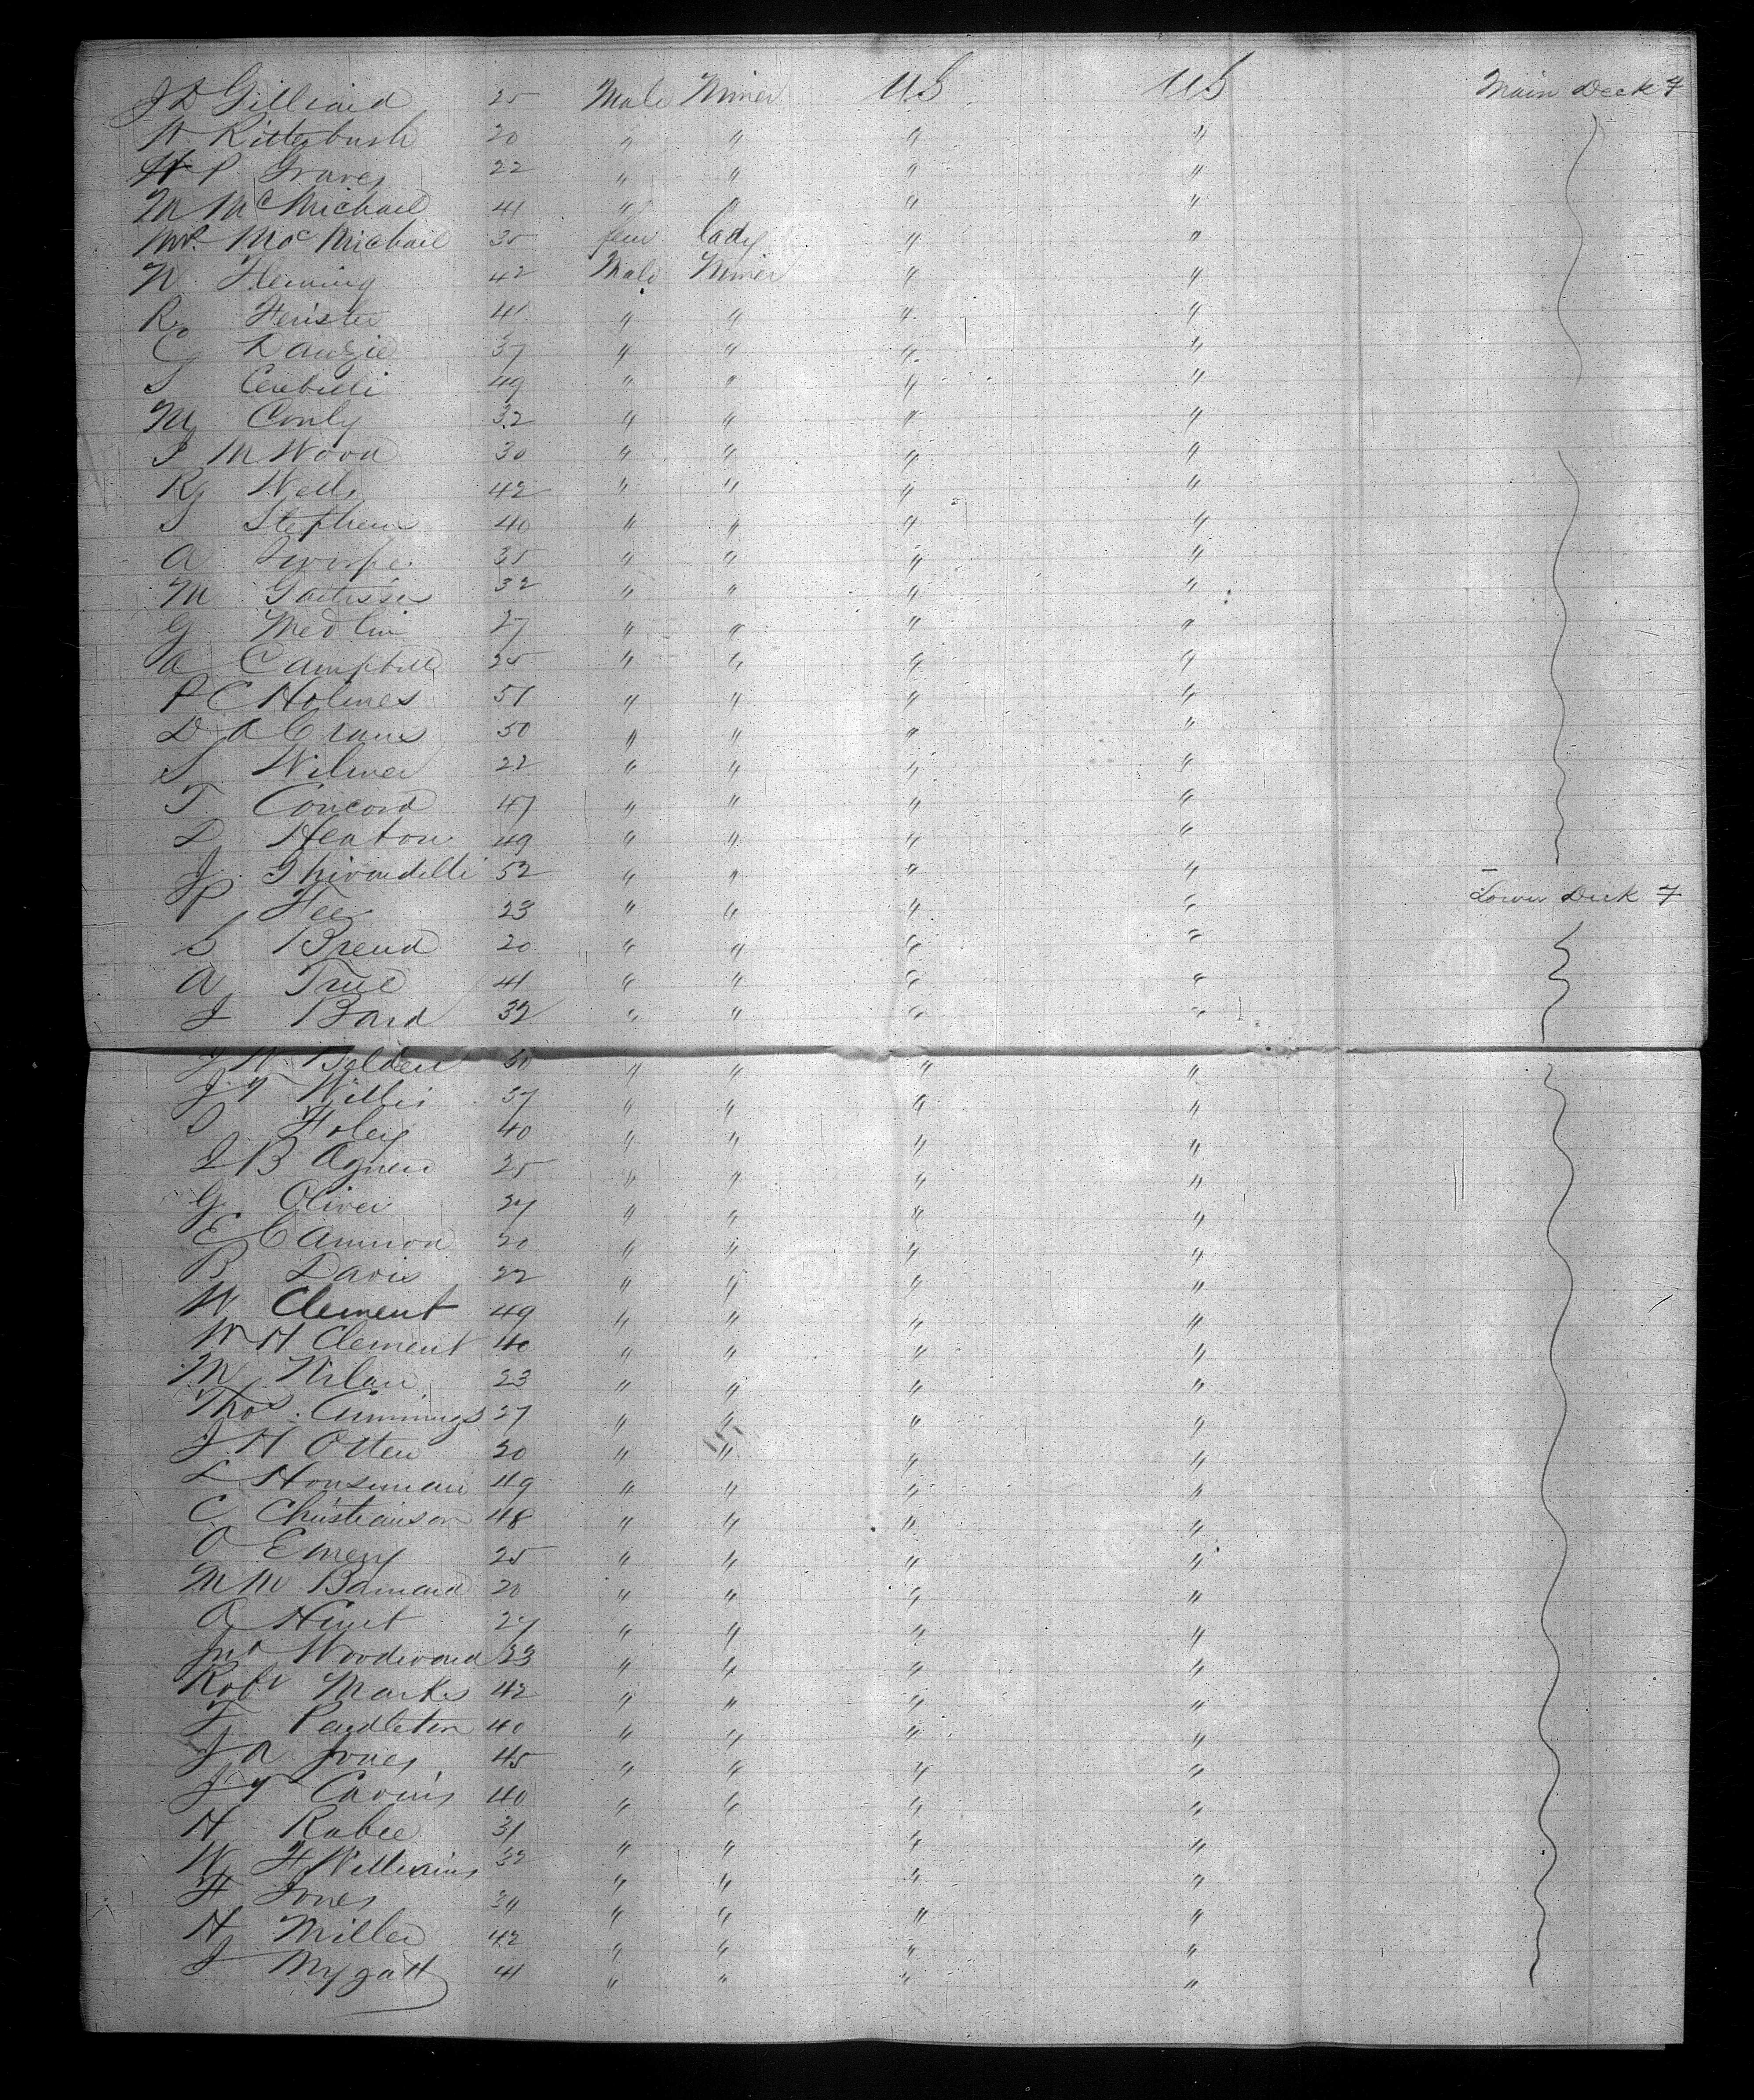 J D Gilliard 25 Male Miner US US Main Deck 7
W Ritterbush 20 " " " "
H P Graves 22 " " " "
M McMichael 41 " " " "
Mrs McMichail 35 fem lady " "
W Fleming 42 Male Miner " "
R Feister 41 " " " "
C Dauzie 37 " " " "
S 49 " " " "
M Conly 32 " " " "
I M Wood 30 " " " "
R Wells 42 " " " "
S Stephens 40 " " " "
A 35 " " " "
M 32 " " " "
G Medlin 27 " " " "
A Campbell 25 " " " "
P C Holmes 51 " " " "
D A Crans 50 " " " "
S Wilmer 22 " " " "
T Concord 47 " " " "
D Heaton 49 " " " "
J Ghirardelli 52 " " " "
P Fee 23 " " " " Lower Deck 7
S Breud 20 " " " "
A True 41 " " " "
J Bard 32 " " " "
J W Belden 30 " " " "
J T Willis 37 " " " "
S Foley 40 " " " "
I B Agnew 25 " " " "
G Oliver 27 " " " "
E Camron 20 " " " "
B Davis 22 " " " "
W Clement 49 " " " "
W H Clement 40 " " " "
M Nilan 23 " " " "
Thos Cummings 27 " " " "
J H Otten 20 " " " "
L Houseman 49 " " " "
C Christianson 48 " " " "
O Emery 25 " " " "
M M Barnard 20 " " " "
A Hunt 27 " " " "
Jno Woodward 33 " " " "
Robt Marks 42 " " " "
T Pendleton 40 " " " "
J A Jones 45 " " " "
J T Cavins 40 " " " "
H Rabee 31 " " " "
W F Williams 32 " " " "
F Jones 34 " " " "
H Miller 42 " " " "
J Mygatt 41 " " " "